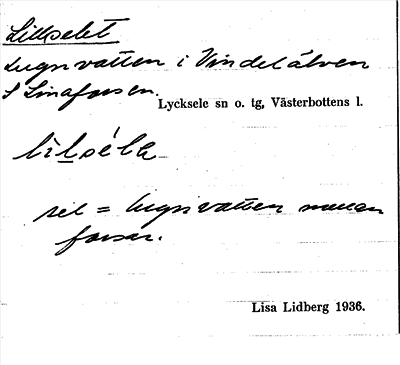 Lillselet
Lugnvatten i Vindelälven
S Linaforsen.
Lycksele sn o. tg, Västerbottens l.
lilsélɐ
sel = lugnvatten mellan
forsar.
Lisa Lidberg 1936.